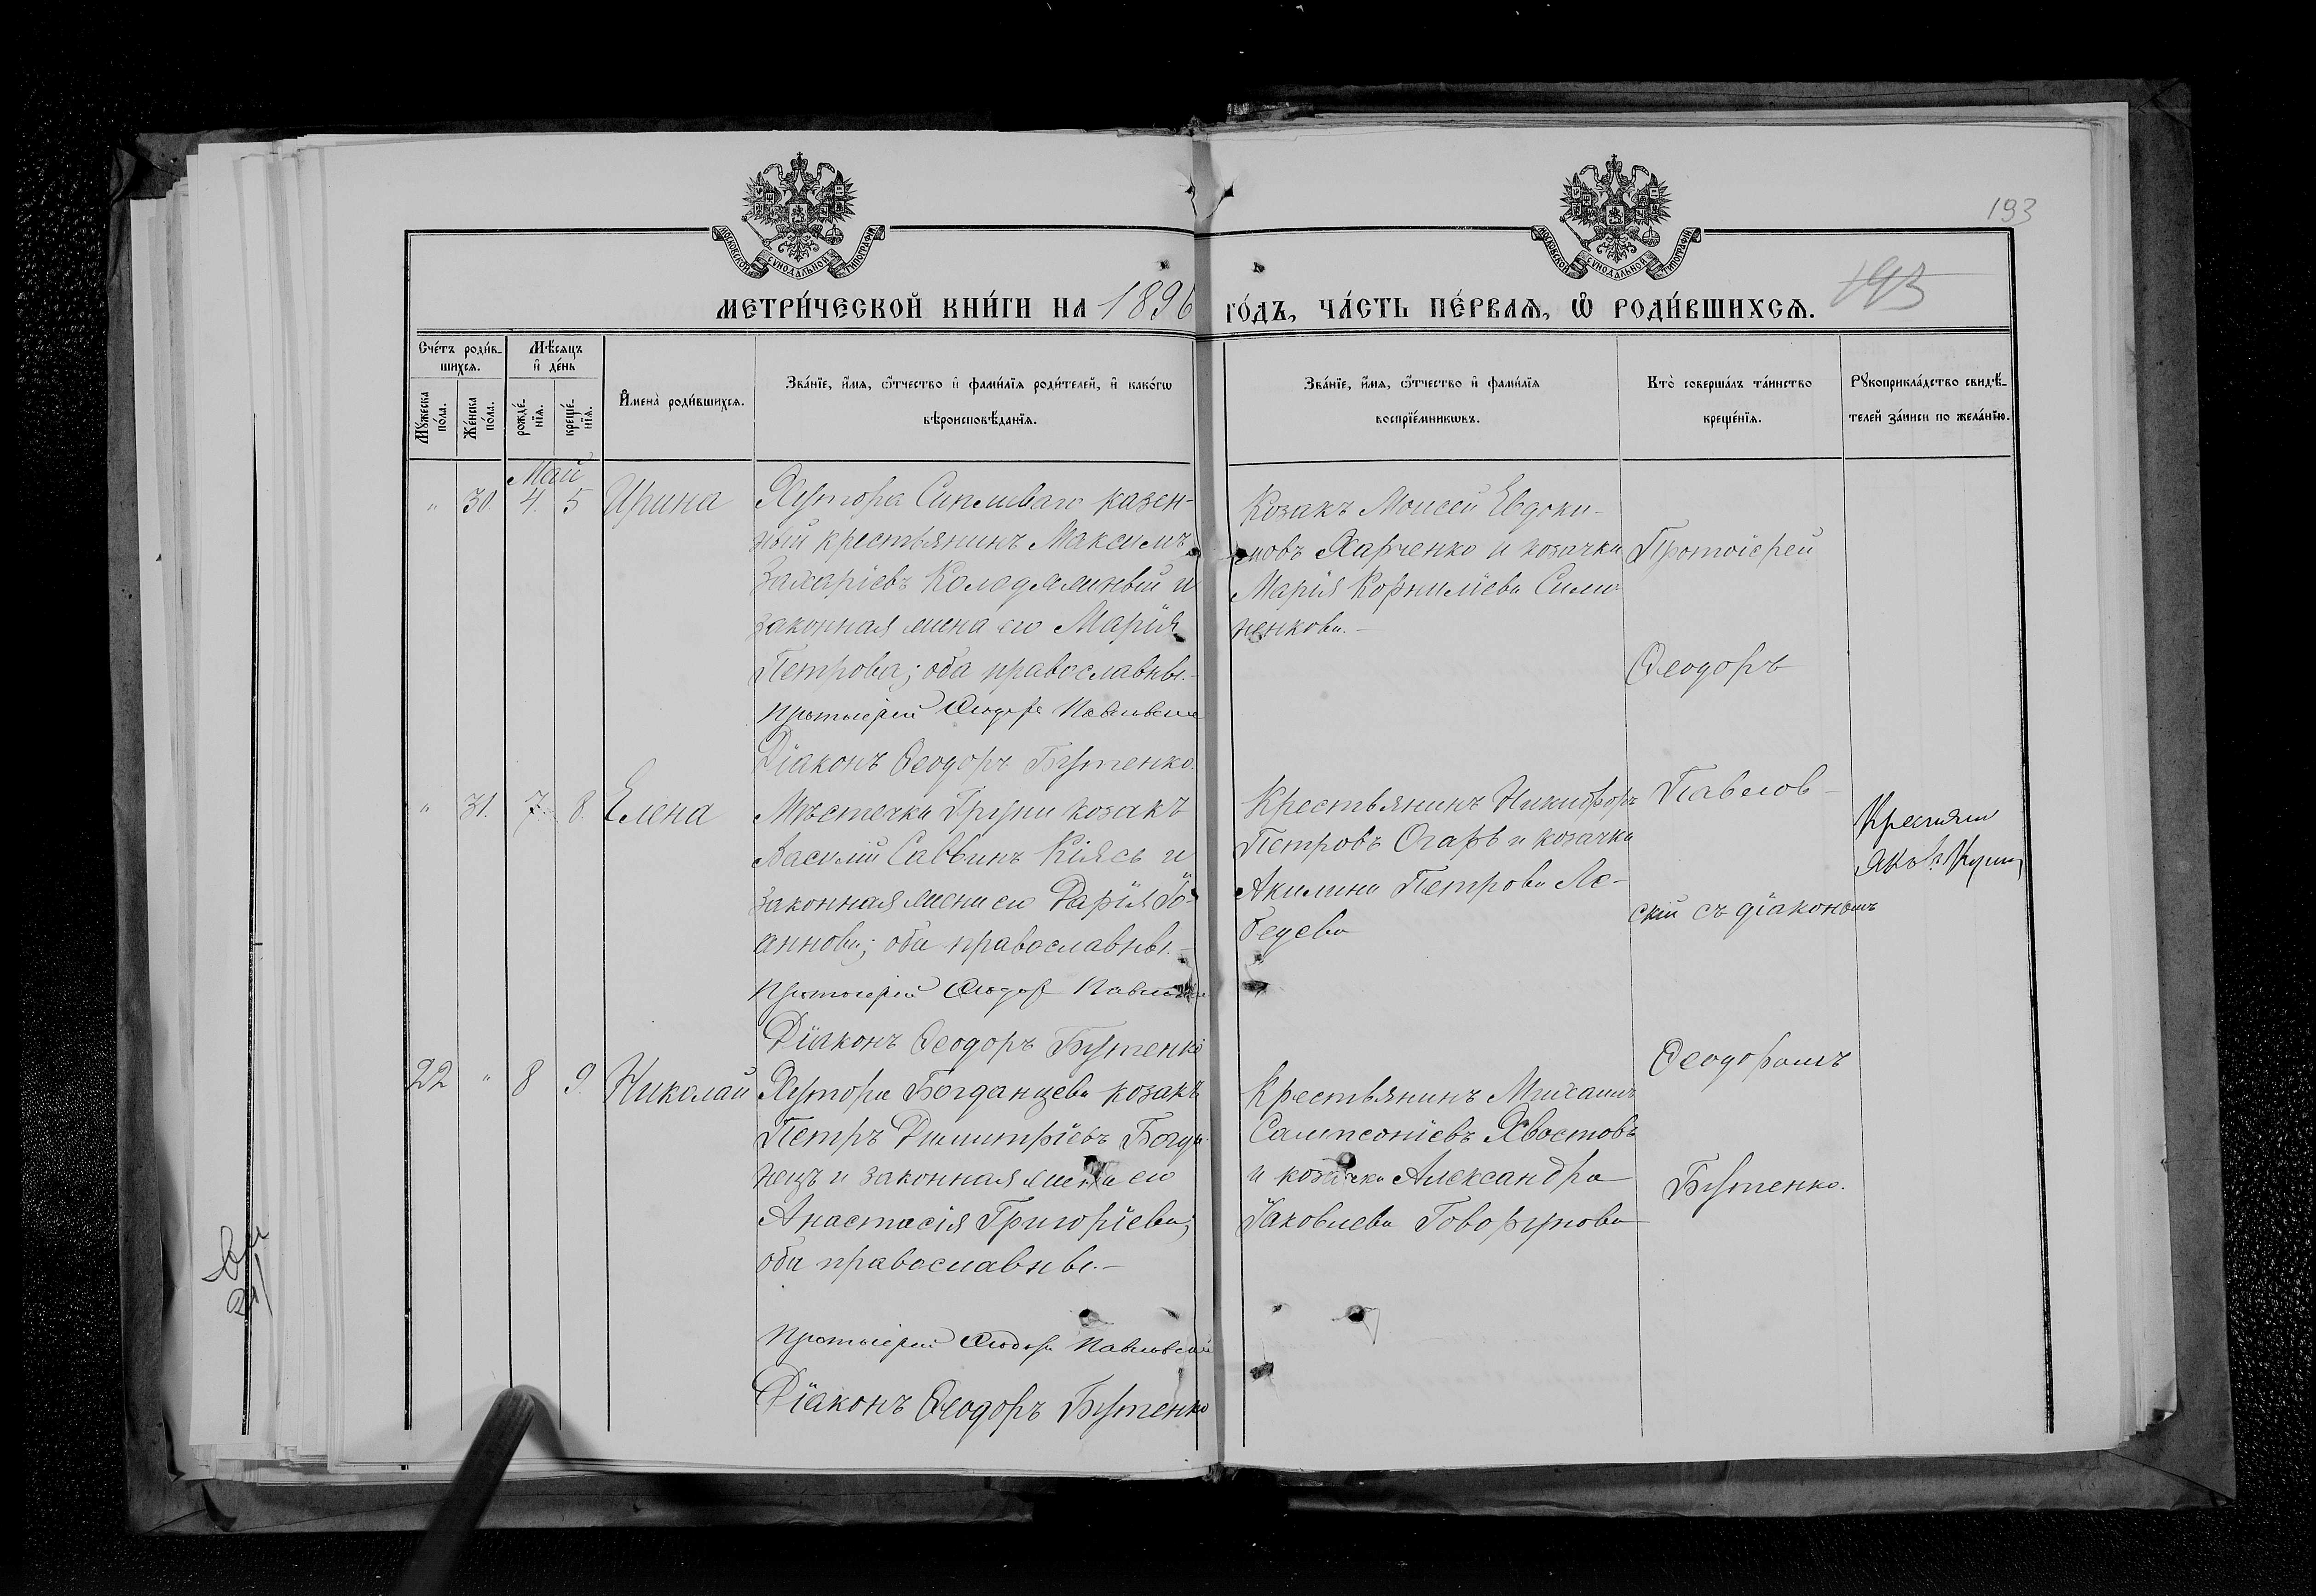 193
МОСКОВСКОЙ СУНОДАЛЬНОЙ ТИПОГРАФІИ
МОСКОВСКОЙ СУНОДАЛЬНОЙ ТИПОГРАФІИ
МЕТРИ́ЧЕСКОЙ КНИ́ГИ НА 1896 ГО́ДЪ, ЧА́СТЬ ПЕ́РВАѦ, Ѡ РОДИ́ВШИХСѦ.
193
Сче́тъ роди́в-
шихсѧ.
Мѣ́сѧцъ
и҆ де́нь
Мꙋ́жеска по́ла.
Же́нска по́ла.
рожде́-
нїѧ.
креще́-
нїѧ.
И҆мена̀ роди́вшихсѧ.
Зва́нїе, и҆́мѧ, ѻ҆́тчество и҆ фами́лїѧ роди́телей, и҆ како́гѡ
вѣроисповѣ́данїѧ.
Зва́нїе, и҆́мѧ, ѻ҆́тчество и҆ фами́лїѧ
воспрїе́мникѡвъ.
Кто̀ соверша́лъ та́инство
креще́нїѧ.
Рꙋкоприкла́дство свидѣ́-
телей за́писи по жела́нїю.
Май
" 30. 4. 5 Ирина
Хутора Сипливаго казен-
ный крестьянинъ Максимъ
Захаріевъ Колодяжный и
законная жена его Марія
Петрова; оба православны.-
Протоіерей Ѳеодоръ Павловскій
Діаконъ Ѳеодоръ Бутенко.
Козакъ Моисей Евдоки-
мовъ Харченко и козачка
Марія Корнилієва Симо-
ненкова.-
Протоіерей
Ѳеодоръ
Павлов-
скій съ діакономъ
Ѳеодоромъ
Бутенко.
" 31. 7. 8. Елена
Мѣстечка Груни козакъ
Василій Саввинъ Кіясь и
законная жена его Дарія Іо-
аннова; оба православны.-
Протоіерей Ѳеодоръ
Діаконъ Ѳеодоръ Бутенко
Крестьянинъ Никифоръ
Петровъ Огарь и козачка
Акилина Петрова Ле-
бедева
22 " 8 9. Николай
Хутора Богданцева козакъ
Петръ Димитріевъ Богда-
нецъ и законная жена его
Анастасія Григоріева;
оба православны.-
Протоіерей Ѳеодоръ Павловскій
Діаконъ Ѳеодоръ Бутенко
Крестьянинъ Михаилъ
Сампсоніевъ Хвостовъ
и козачка Александра
Іаковлева Говорунова